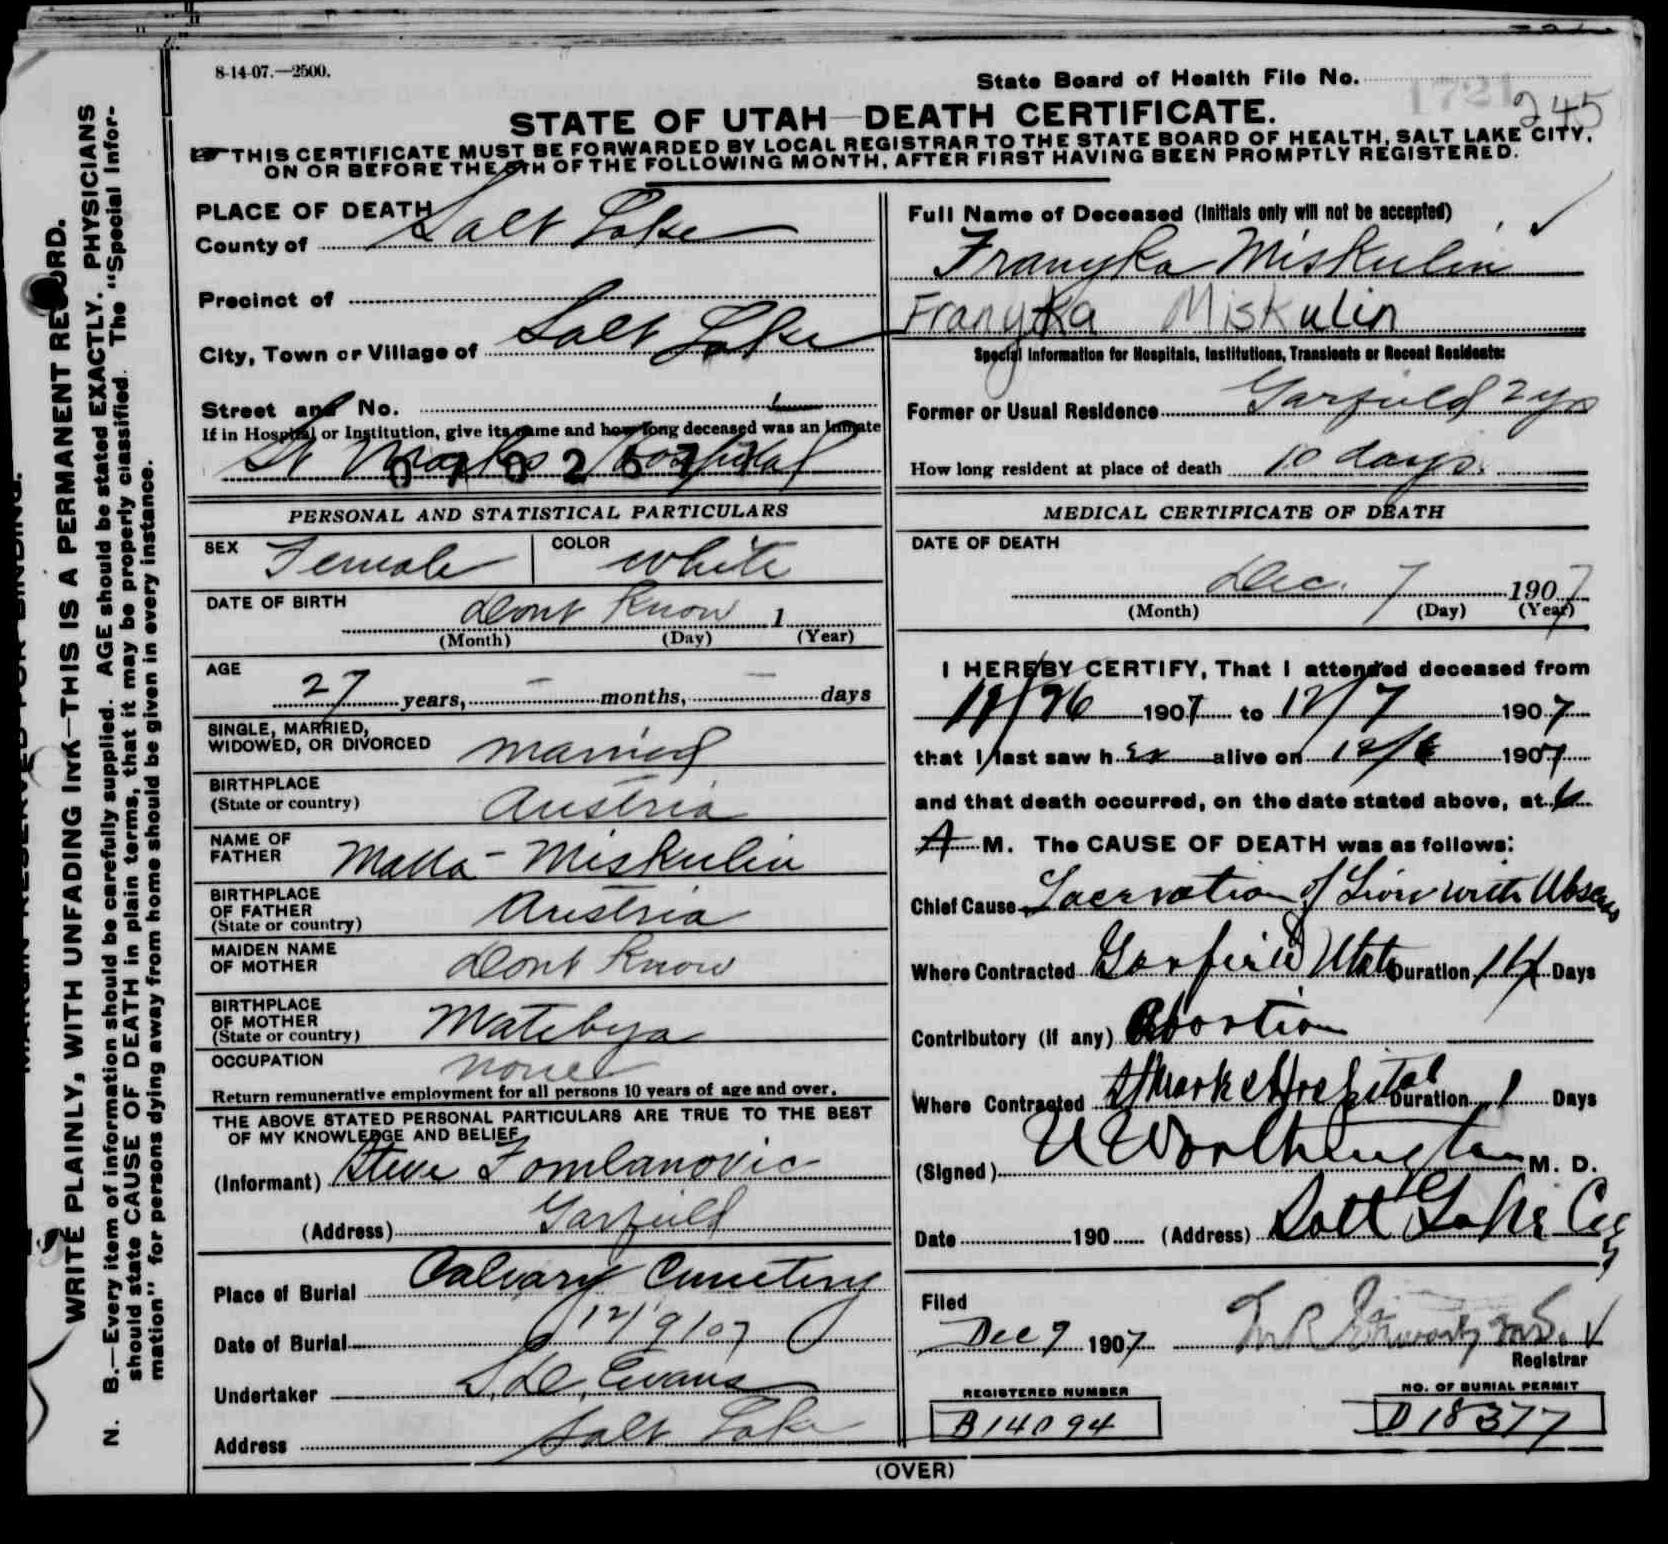 8-14-07.—2500.
State Board of Health File No. 1721
245
STATE OF UTAH—DEATH CERTIFICATE.
☞ THIS CERTIFICATE MUST BE FORWARDED BY LOCAL REGISTRAR TO THE STATE BOARD OF HEALTH, SALT LAKE CITY,
ON OR BEFORE THE 5TH OF THE FOLLOWING MONTH, AFTER FIRST HAVING BEEN PROMPTLY REGISTERED.
PLACE OF DEATH
County of Salt Lake
Precinct of
City, Town or Village of Salt Lake
Street and No.
If in Hospital or Institution, give its name and how long deceased was an inmate
St Marks Hospital
Full Name of Deceased (Initials only will not be accepted)
Franyka Miskulin
Franyka Miskulin
Special Information for Hospitals, Institutions, Transients or Recent Residents:
Former or Usual Residence Garfield 2 yrs
How long resident at place of death 10 days.
PERSONAL AND STATISTICAL PARTICULARS
SEX Female COLOR White
DATE OF BIRTH Dont Know 1
(Month) (Day) (Year)
AGE
27 years, — months, — days
SINGLE, MARRIED,
WIDOWED, OR DIVORCED married
BIRTHPLACE
(State or country) Austria
NAME OF
FATHER Miskulin
BIRTHPLACE
OF FATHER
(State or country) Austria
MAIDEN NAME
OF MOTHER Dont Know
BIRTHPLACE
OF MOTHER
(State or country)
OCCUPATION none
Return remunerative employment for all persons 10 years of age and over.
THE ABOVE STATED PERSONAL PARTICULARS ARE TRUE TO THE BEST
OF MY KNOWLEDGE AND BELIEF
(Informant) Steve Tomlanovic
(Address) Garfield
Place of Burial Calvary Cemetery
Date of Burial 12/9/07
Undertaker S. D. Evans
Address Salt Lake
MEDICAL CERTIFICATE OF DEATH
DATE OF DEATH
Dec. 7 1907
(Month) (Day) (Year)
I HEREBY CERTIFY, That I attended deceased from
11/26 1907 to 12/7 1907
that I last saw her alive on 12/6 1907
and that death occurred, on the date stated above, at 6
A M. The CAUSE OF DEATH was as follows:
Chief Cause Lacervation of Liver with Abscess
Where Contracted Garfield Utah Duration 14 Days
Contributory (if any) Abortion
Where Contracted St Marks Hospital Duration 1 Days
(Signed) Worthington M. D.
Date 190 (Address) Salt Lake City
Filed
Dec 9 1907 M.D.
Registrar
REGISTERED NUMBER
B14094
NO. OF BURIAL PERMIT
D18377
(OVER)
MARGIN RESERVED FOR BINDING.
WRITE PLAINLY, WITH UNFADING INK—THIS IS A PERMANENT RECORD.
N. B.—Every item of information should be carefully supplied. AGE should be stated EXACTLY. PHYSICIANS
should state CAUSE OF DEATH in plain terms, that it may be properly classified. The "Special Infor-
mation" for persons dying away from home should be given in every instance.